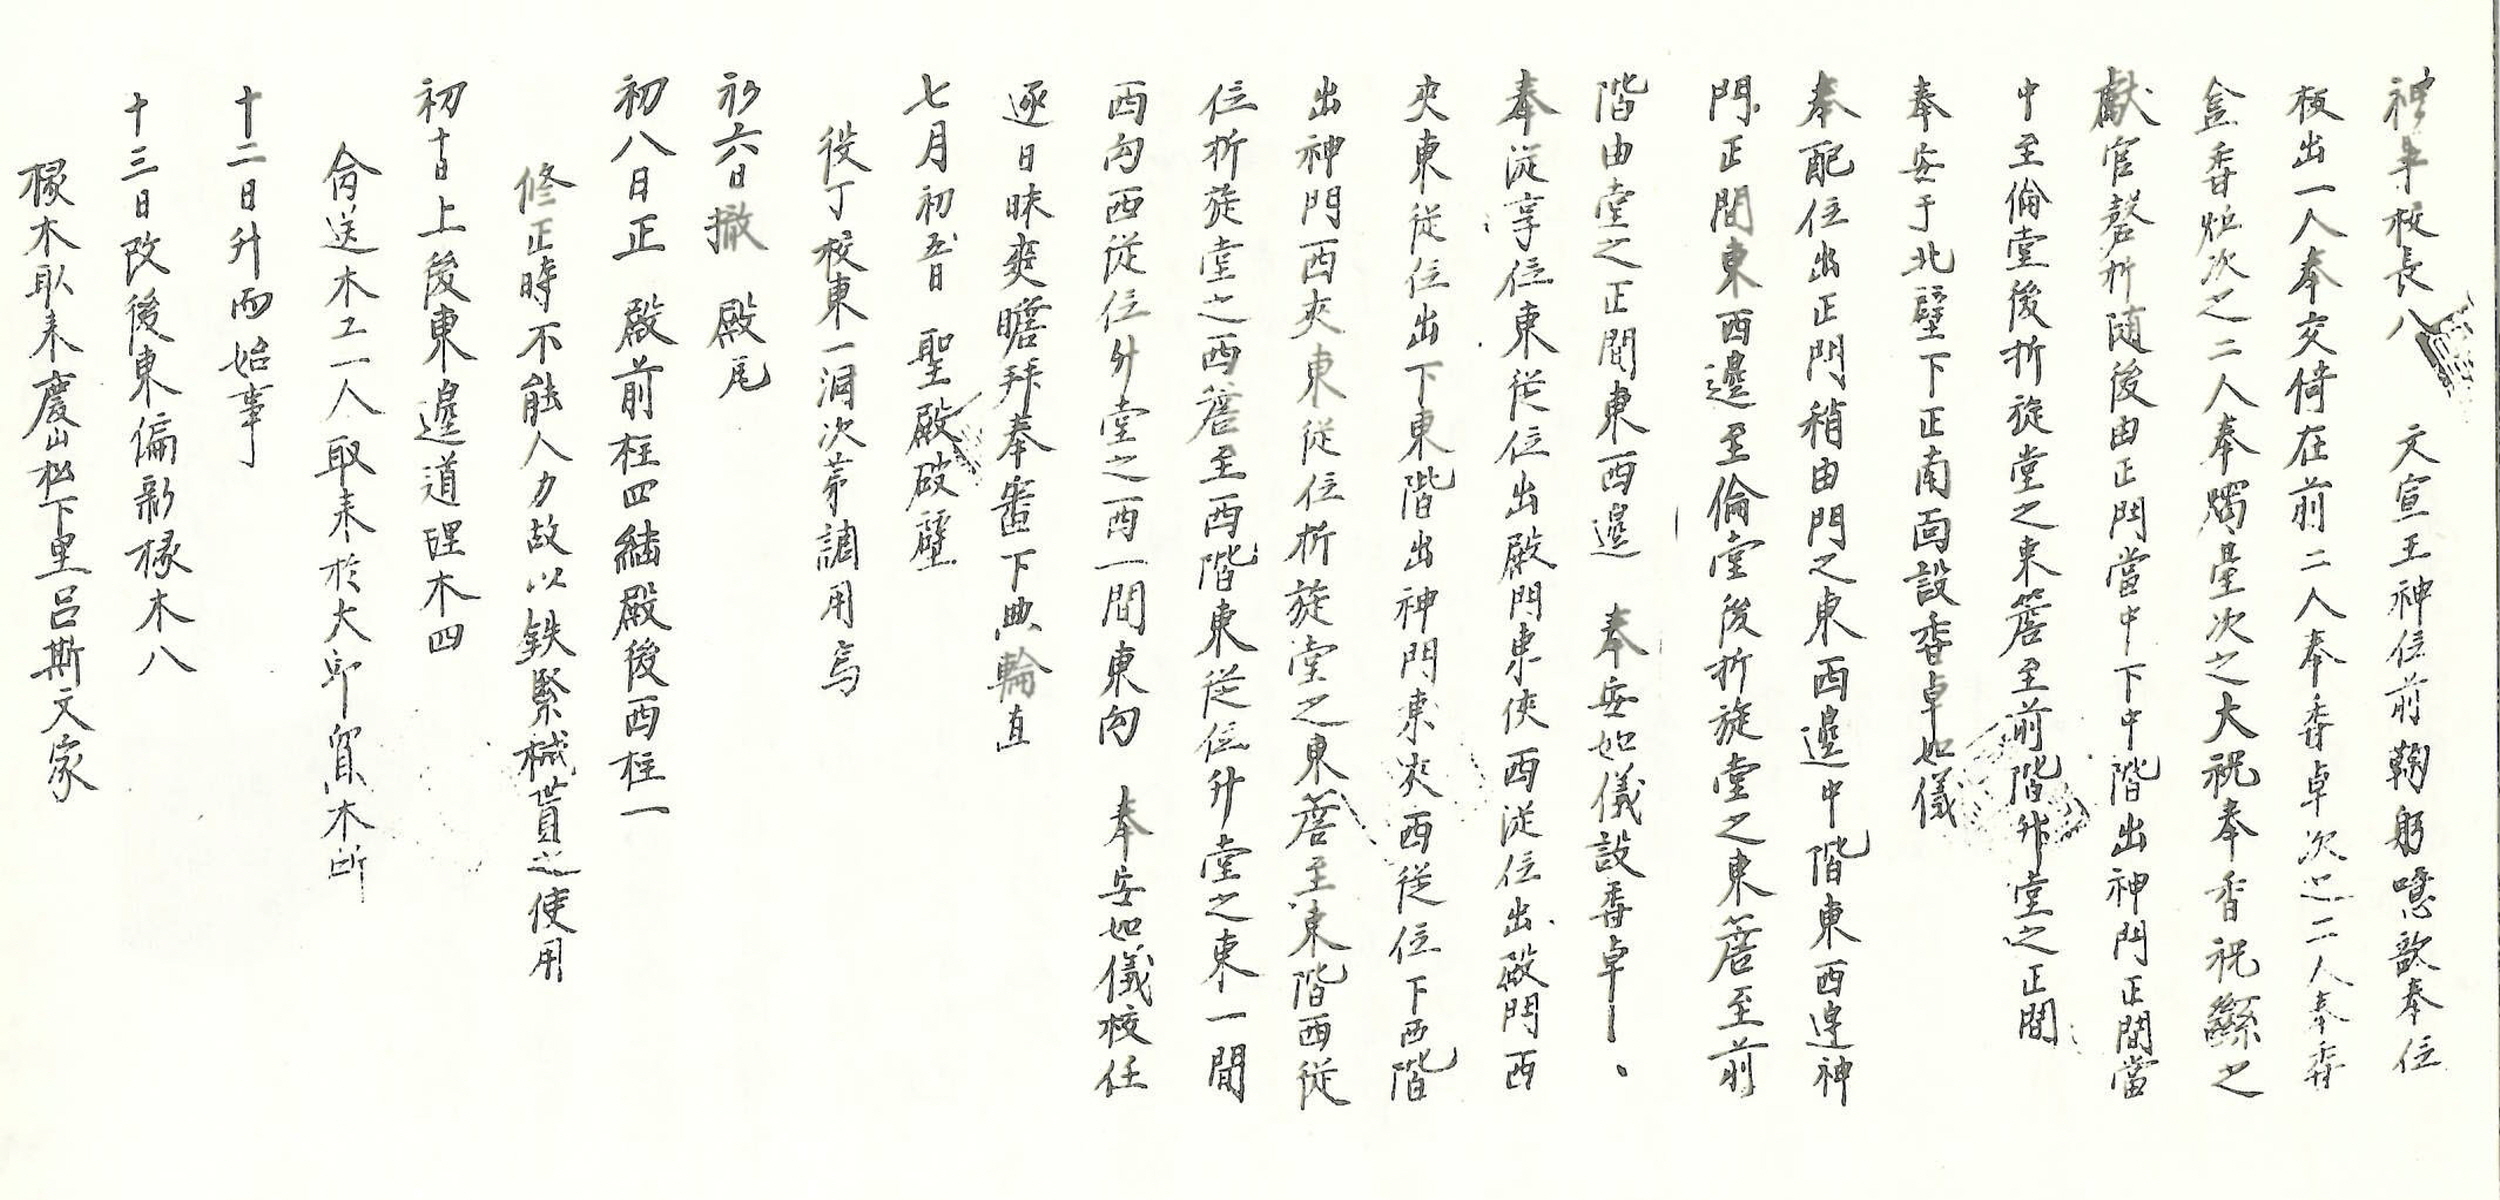 神卓板長八 文宣王神位前鞠躬噫歆奉位
板出一人奉交倚在前二人奉香卓次之二人奉香
盒香炉次之二人奉燭臺次之大祝奉香祝繇之
獻官磬折随後由正門當中下中階出神門正間當
中至倫堂後折旋堂之東簷至前階升堂之正間
奉安于北壁下正南面設香卓如儀
奉配位出正門稍由門之東西邊中階東西邊神
門正間東西邊至倫堂後折旋堂之東簷至前
階由堂之正間東西邊 奉安如儀設香卓
奉從享位東從位出殿門東俠西從位出殿門西
夾東從位出下東階出神門東夾西從位下西階
出神門西夾東從位折旋堂之東簷至東階西從
位折旋堂之西簷至西階東從位升堂之東一間
西向西從位升堂之西一間東向 奉安如儀校任
逐日昧爽瞻拜奉審下典輪直
七月初五日 聖殿破壁
役丁校東一洞次第調用焉
初六日撤 殿尾
初八日正 殿前柱四結殿後西柱一
修正時不能人力故以鉄緊械貰之使用
初十日上後東邊道理木四
侖送木工一人取来於大卯貿木所
十二日升而始事
十三日改後東偏新椽木八
椽木取来慶山松下里呂斯文家